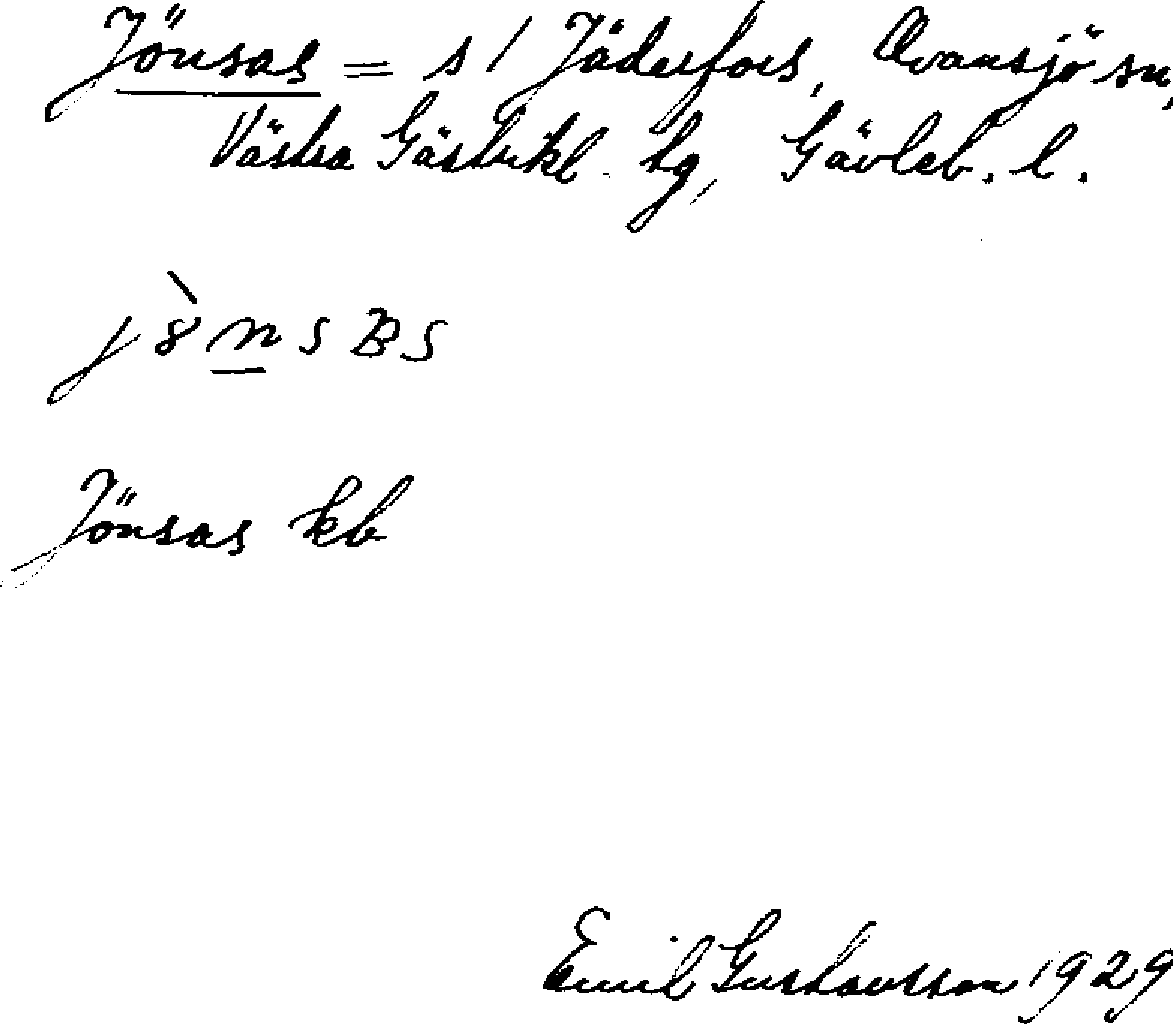 Jönsas = s/ Jäderfors, Ovansjö sn,
Västra Gästrikl. hg, Gävleb. l.
Jönsas kb
Emil Gustavsson 1929